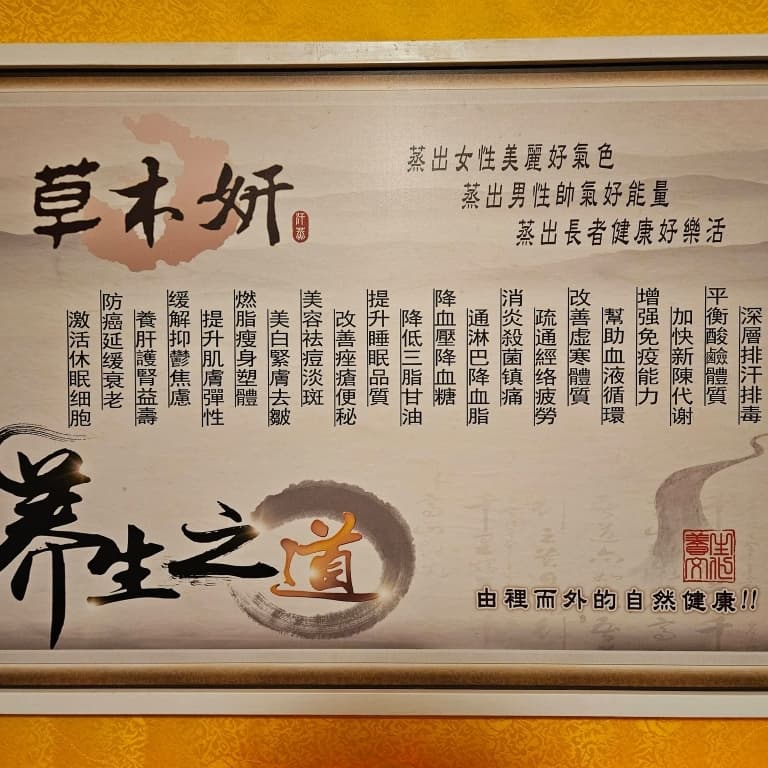 草木妍
汗蒸
蒸出女性美麗好氣色
蒸出男性帥氣好能量
蒸出長者健康好樂活
深層排汗排毒
平衡酸鹼體質
加快新陳代谢
增强免疫能力
幫助血液循環
改善虛寒體質
疏通經络疲勞
消炎殺菌镇痛
通淋巴降血脂
降血壓降血糖
降低三脂甘油
提升睡眠品質
改善痤瘡便秘
美容祛痘淡斑
美白緊膚去皺
燃脂瘦身塑體
提升肌膚彈性
缓解抑鬱焦慮
養肝護腎益壽
防癌延缓衰老
激活休眠细胞
养生之道
養生文化
由裡而外的自然健康!!